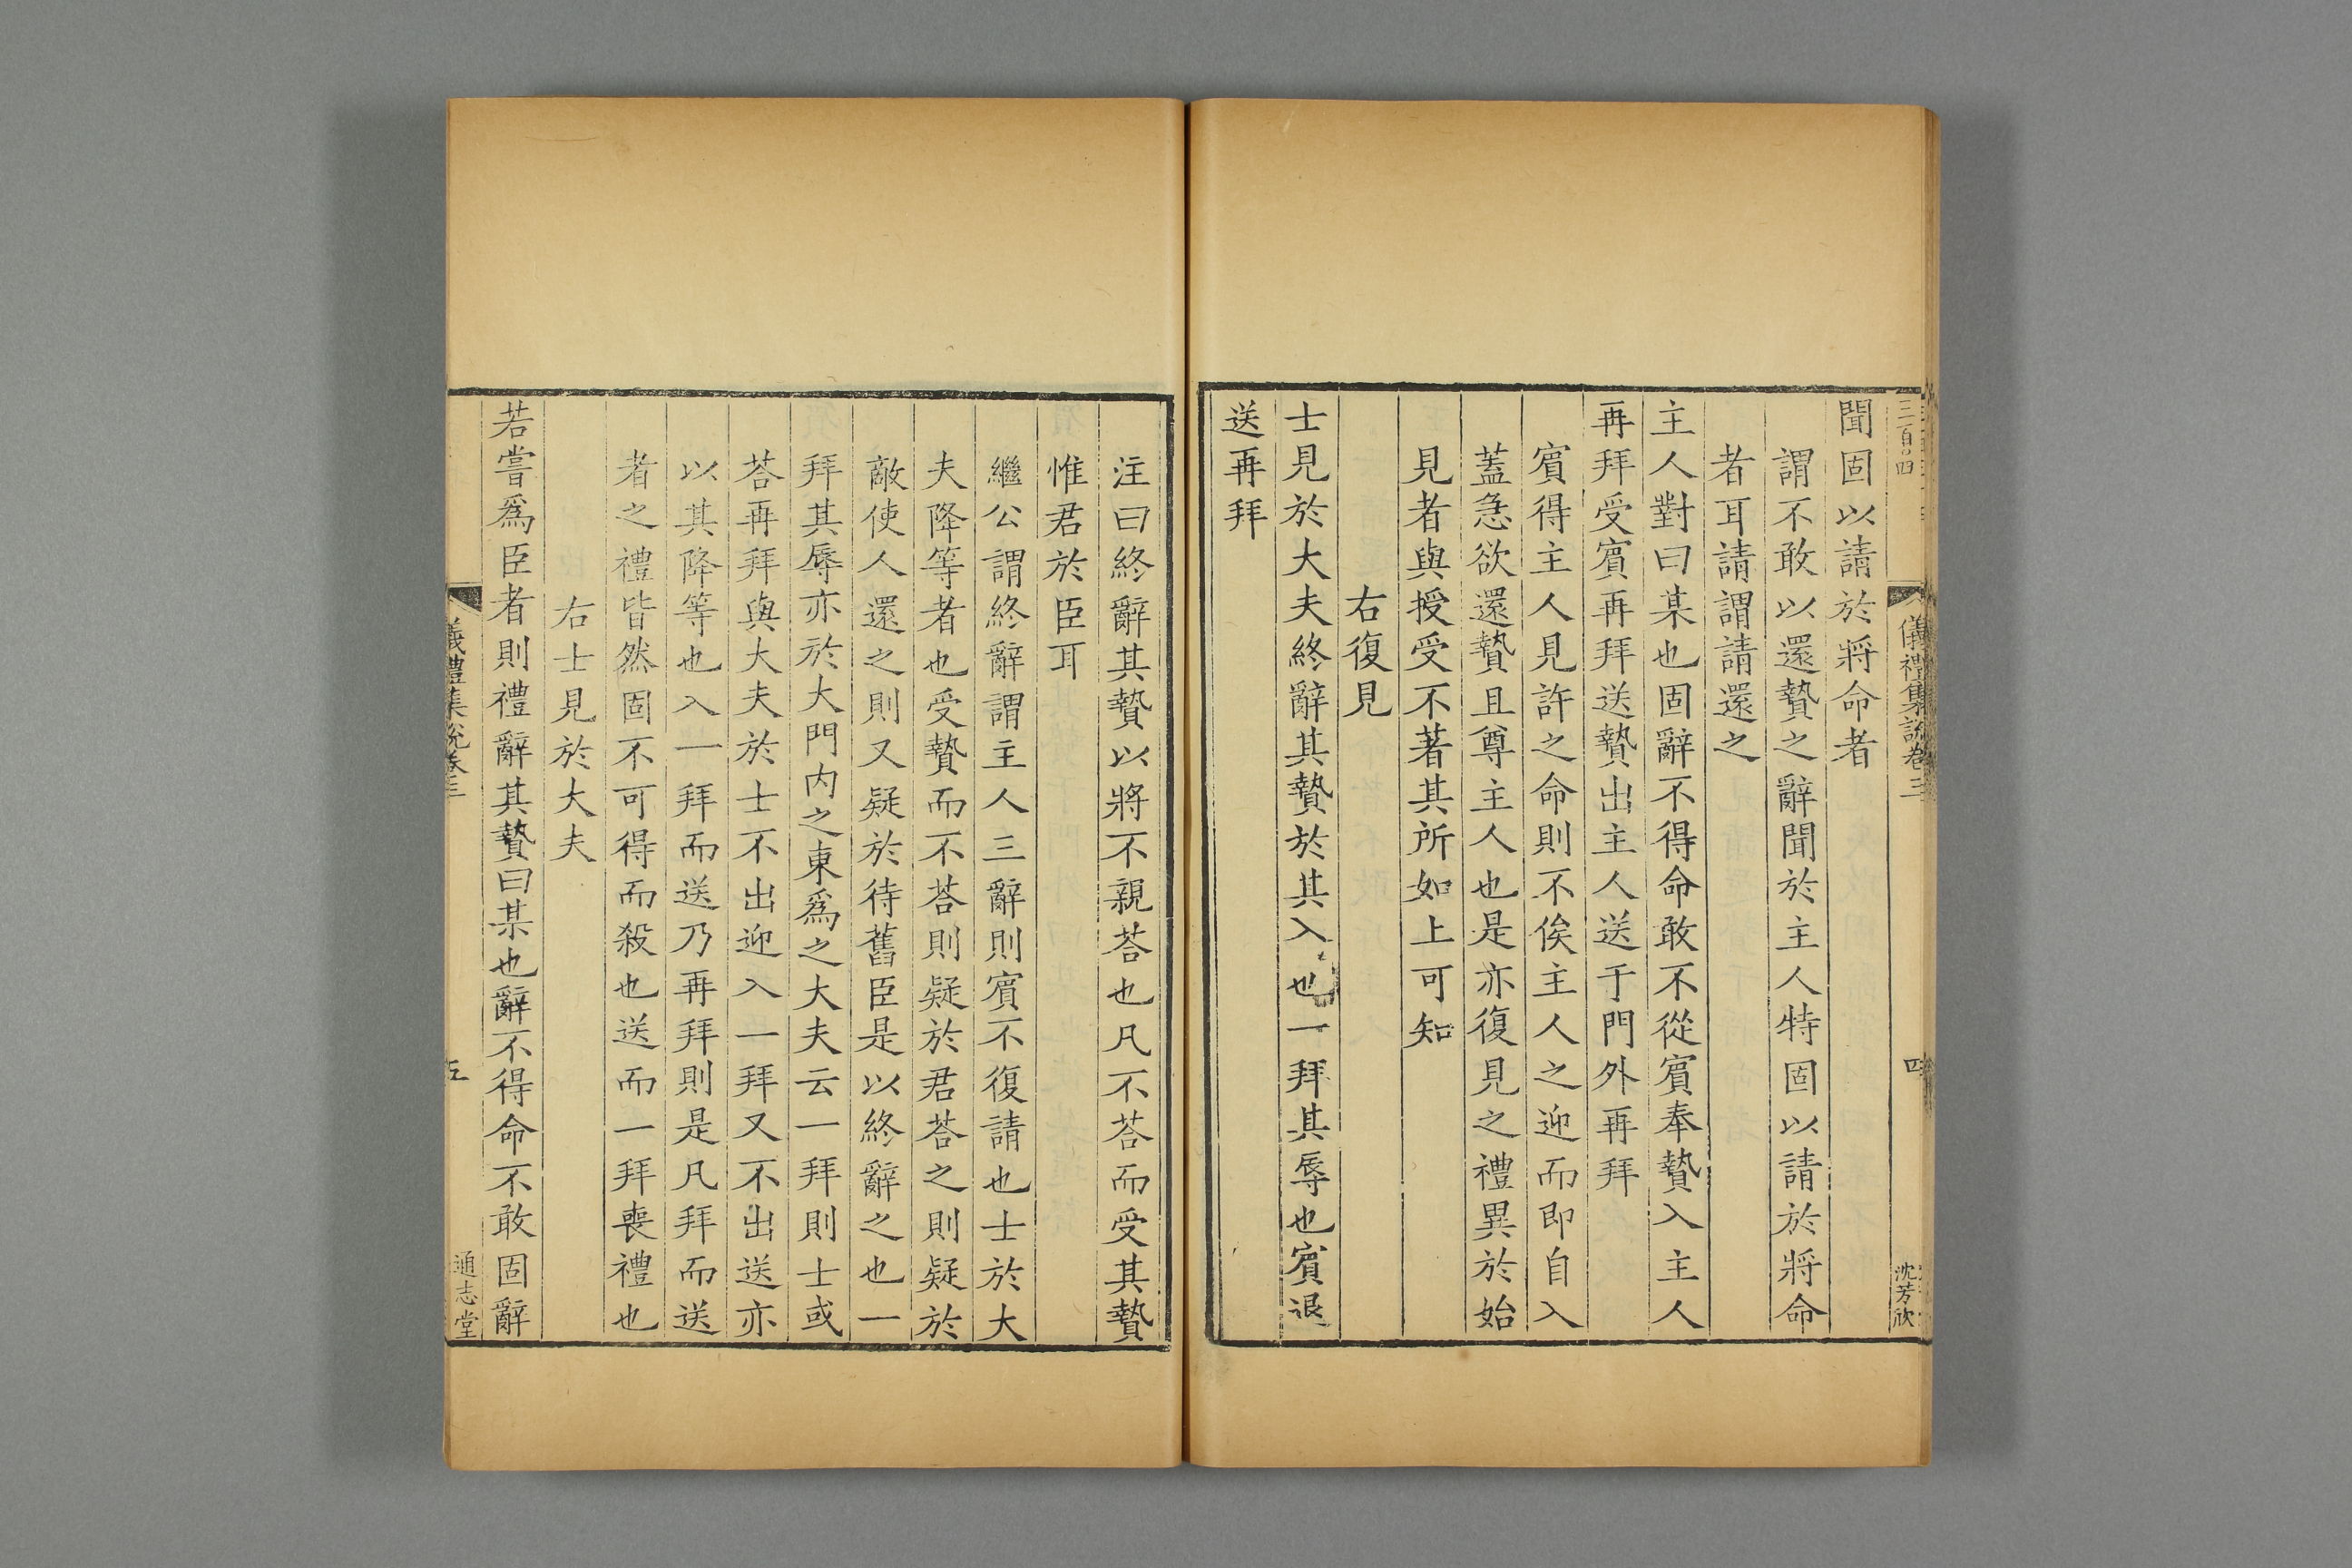 三百〇四
儀禮集說卷三
四
沈芳欣
聞固以請於將命者
謂不敢以還贄之辭聞於主人特固以請於將命
者耳請謂請還之
主人對曰某也固辭不得命敢不從賓奉贄入主人
再拜受賓再拜送贄出主人送于門外再拜
賓得主人見許之命則不俟主人之迎而即自入
蓋急欲還贄且尊主人也是亦復見之禮異於始
見者與授受不著其所如上可知
右復見
士見於大夫終辭其贄於其入也一拜其辱也賓退
送再拜
注曰終辭其贄以將不親荅也凡不荅而受其贄
惟君於臣耳
繼公謂終辭謂主人三辭則賓不復請也士於大
夫降等者也受贄而不荅則疑於君荅之則疑於
敵使人還之則又疑於待舊臣是以終辭之也一
拜其辱亦於大門內之東爲之大夫云一拜則士或
荅再拜與大夫於士不出迎入一拜又不出送亦
以其降等也入一拜而送乃再拜則是凡拜而送
者之禮皆然固不可得而殺也送而一拜喪禮也
右士見於大夫
若嘗爲臣者則禮辭其贄曰某也辭不得命不敢固辭
儀禮集說卷三
五
通志堂